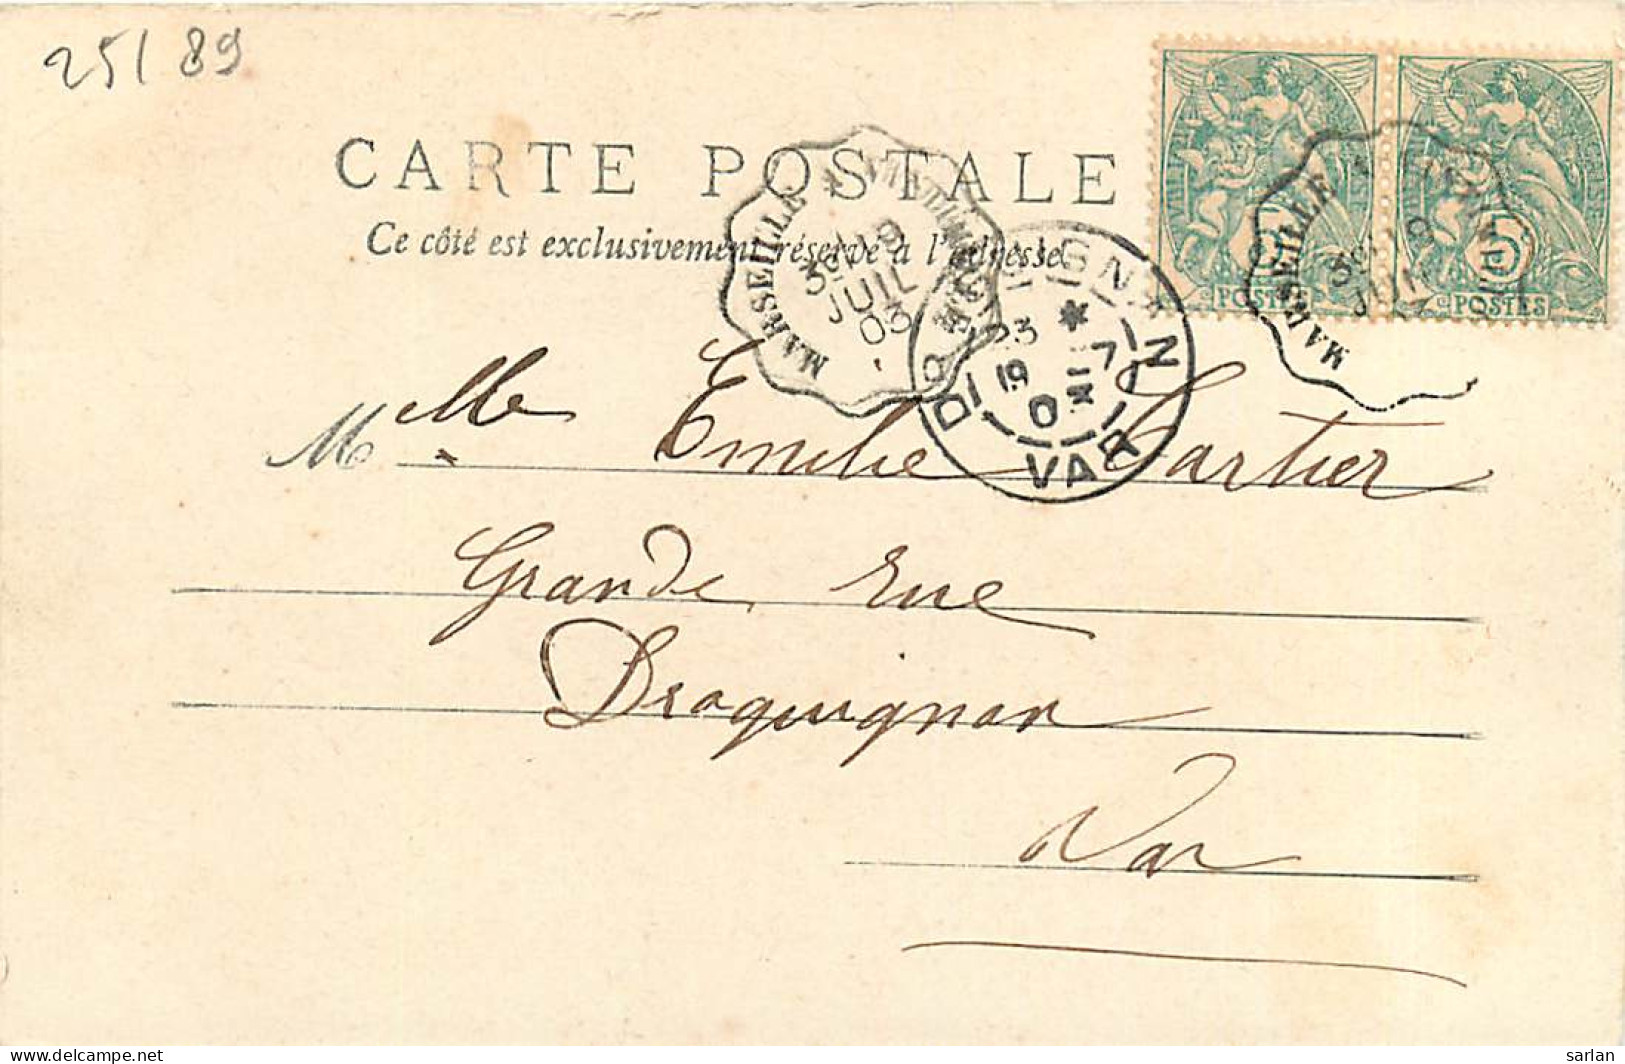 25/89
CARTE POSTALE
Ce côté est exclusivement réservé à l'adresse
MARSEILLE
JUIL
03
VAR
5
POSTES
5
POSTES
MARSEILLE
Mlle Emilie Cartier
Grande Rue
Draguignan
Var
delcampe.net
sarlan